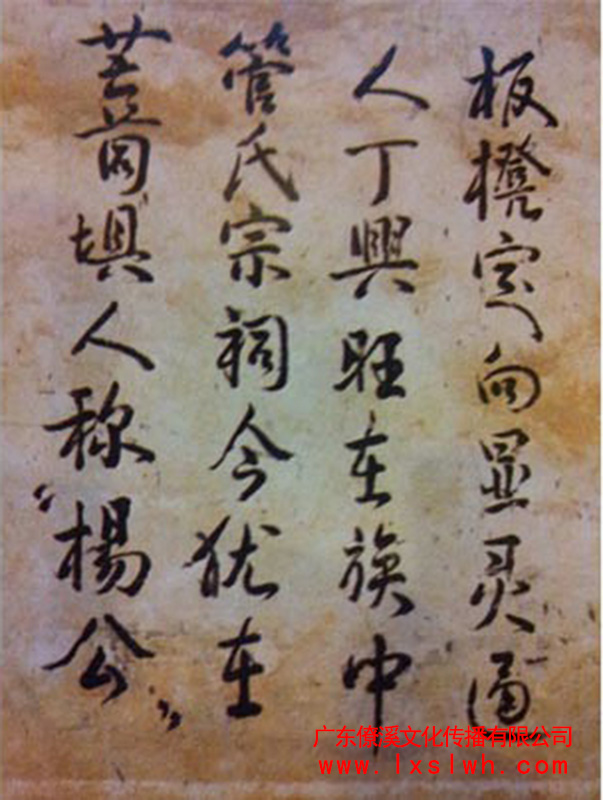 板櫈定向显灵通
人丁興旺在族中
管氏宗祠今犹在
埧人称“楊公”
广东傜溪文化传播有限公司
www.lxslwh.com